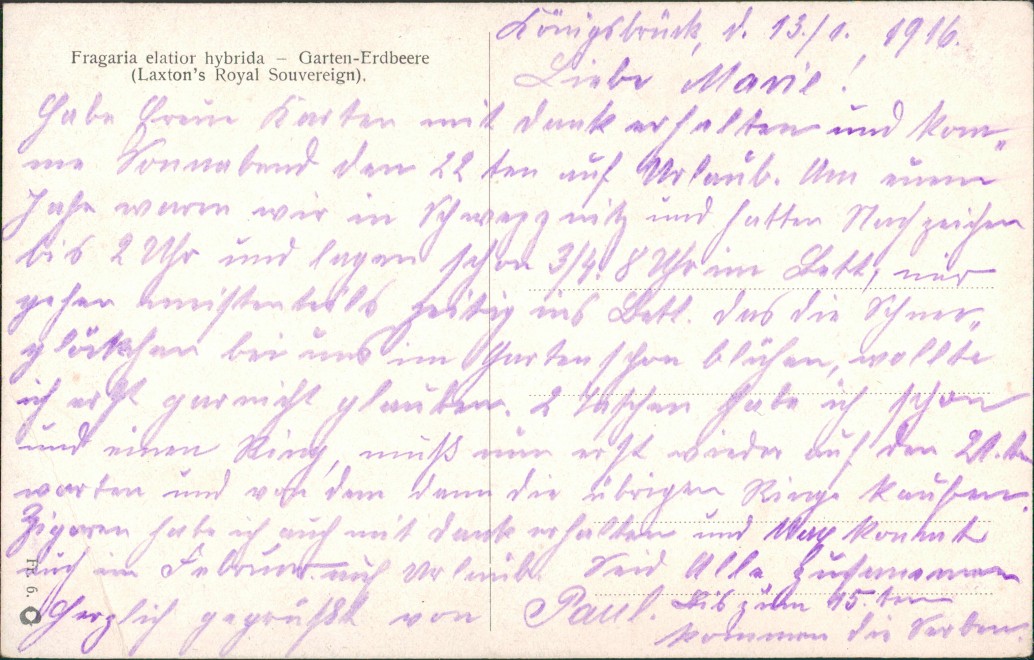 Fragaria elatior hybrida – Garten-Erdbeere
(Laxton's Royal Souvereign).
Königsbrück, d. 13./1. 1916.
Liebe Marie!
Habe Eeure Karten mit dank erhalten und kom„
me Sonnabend den 22 ten auf Urlaub. Am einen
Jahr waren wir in Schwepnitz und hatten Nachzeichen
bis 2 Uhr und lagen schon 3/4 8 Uhr im Bett, wir
gehen meistenteils zeitig ins Bett. Das die Schnee„
glöckchen bei uns im Garten schon blühen, wollte
ich erst garnicht glauben. 2 Taschen habe ich schon
und einen Ring, muß nun erst wieder auf den 21.ten
warten und von dem dann die übrigen Ringe kaufen.
Zigaren habe ich auch mit dank erhalten und Max kommt
auch im Februar auf Urlaub. Seid Alle zusammen
Herzlich gegrüßt von Paul. Bis zum 15.ten
kommen die Serben.
Fr. 6.